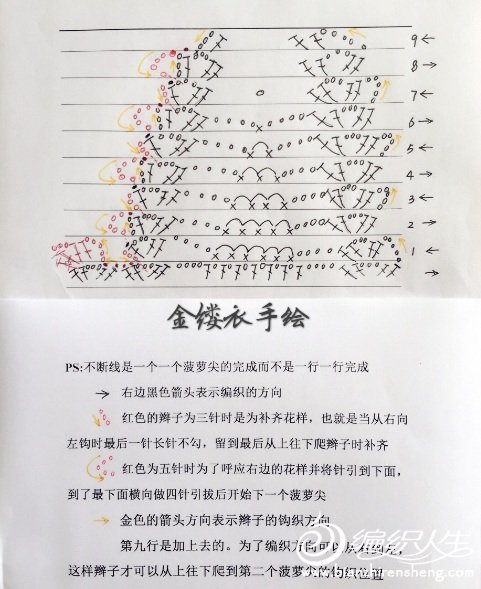 9←
8→
7←
6→
5←
4→
3←
2→
1←
→
金缕衣手绘
PS:不断线是一个一个菠萝尖的完成而不是一行一行完成
→ 右边黑色箭头表示编织的方向
红色的辫子为三针时是为补齐花样，也就是当从右向
左钩时最后一针长针不勾，留到最后从上往下爬辫子时补齐
红色为五针时为了呼应右边的花样并将针引到下面，
到了最下面横向做四针引拔后开始下一个菠萝尖
→ 金色的箭头方向表示辫子的钩织方向
第九行是加上去的。为了编织方向可以从右到左，
这样辫子才可以从上往下爬到第二个菠萝尖的钩织位置
编织人生